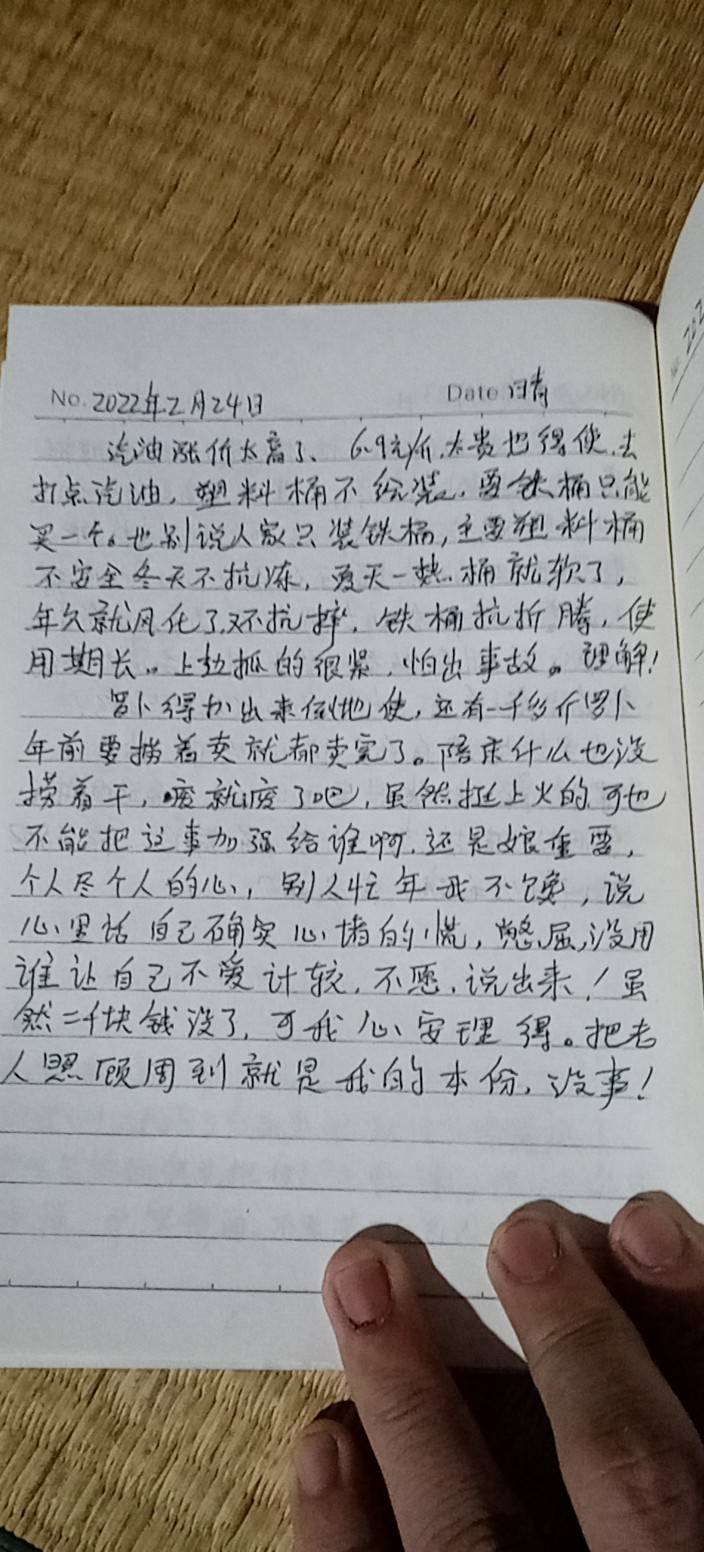 No. 2022年2月24日 Date 阴晴
汽油涨价太高了、6.9元/斤,太贵也得使,去
打点汽油,塑料桶不给装,要铁桶只能
买一个。也别说人家只装铁桶,主要塑料桶
不安全冬天不抗冻,夏天一热.桶就软了,
年久就风化了,又不抗摔,铁桶抗折腾,使
用期长。上边抓的很紧,怕出事故。理解!
罗卜得扒出来倒地使,还有一千多斤罗卜
年前要捞着卖就都卖完了。陪床什么也没
捞着干,废就废了吧,虽然挺上火的,可也
不能把这事加强给谁啊.还是娘重要,
个人尽个人的心,别人忙年我不馋,说
心里话自己确实心堵的慌,憋屈,没用
谁让自己不爱计较,不愿.说出来!虽
然二千块钱没了,可我心安理得。把老
人照顾周到就是我的本份,没事!
202